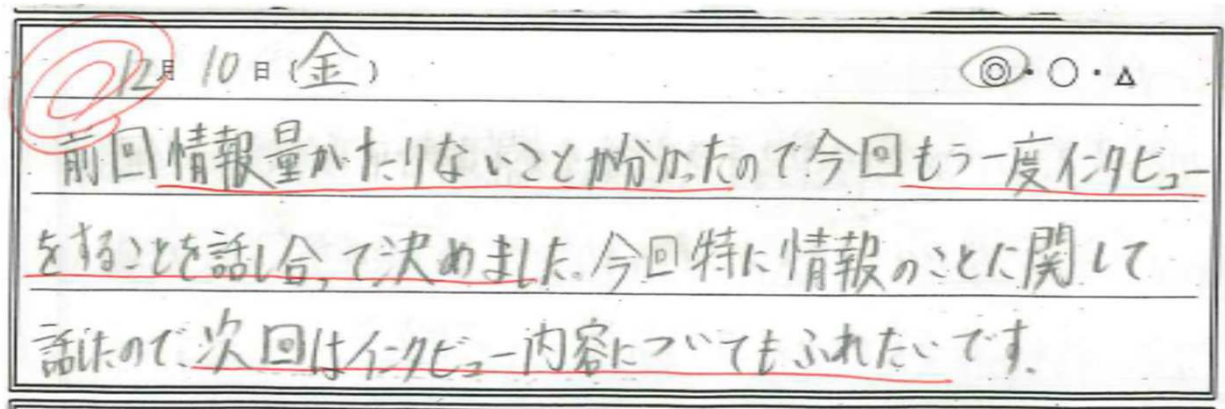 12月 10日(金) ◎・○・△
前回情報量がたりないことが分かったので今回もう一度インタビュー
をすることを話し合って決めました。今回特に情報のことに関して
話したので、次回はインタビュー内容についてもふれたいです。